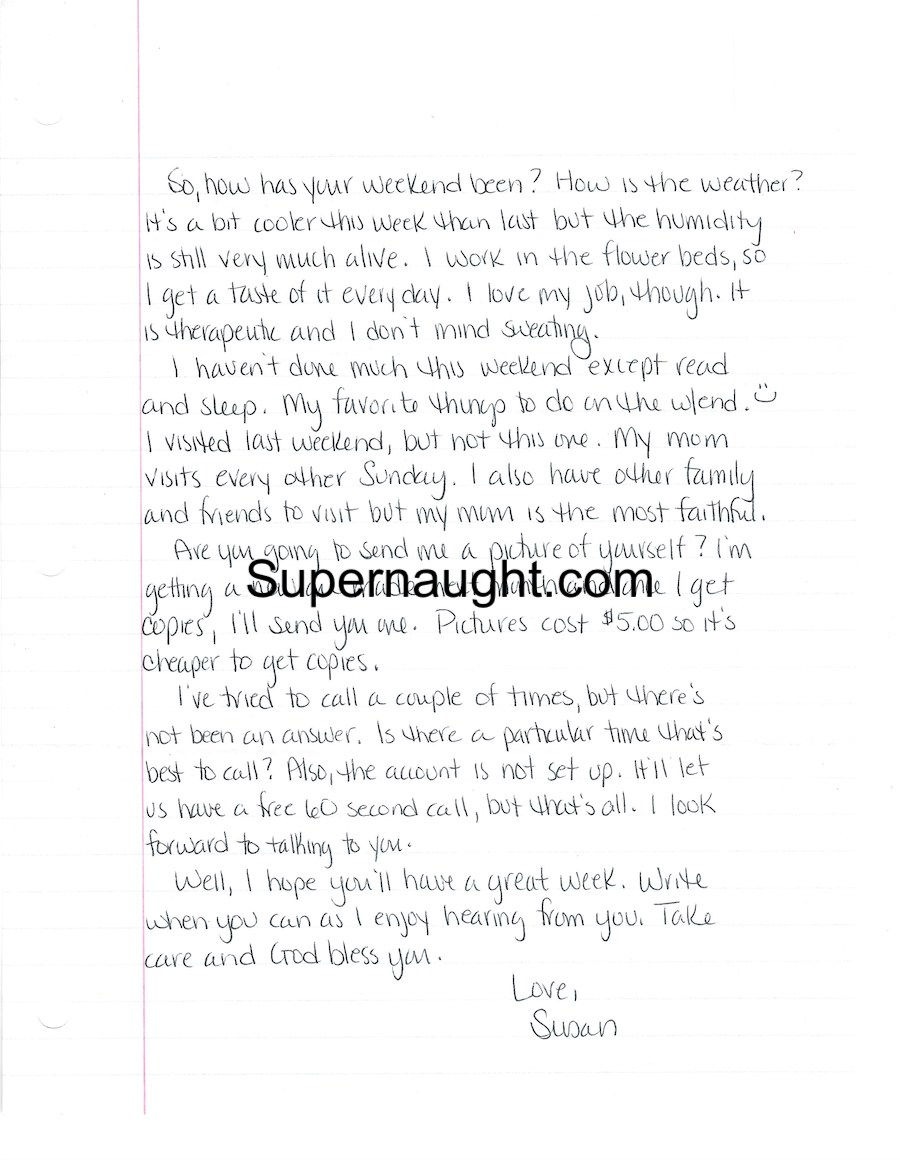 So, how has your weekend been? How is the weather?
It's a bit cooler this week than last but the humidity
is still very much alive. I work in the flower beds, so
I get a taste of it everyday. I love my job, though. It
is therapeutic and I don't mind sweating.
I haven't done much this weekend except read
and sleep. My favorite things to do on the w/end.
I visited last weekend, but not this one. My mom
visits every other Sunday. I also have other family
and friends to visit but my mom is the most faithful.
Are you going to send me a picture of yourself? I'm
Supernaught.com
getting a made next month and once I get
copies, I'll send you one. Pictures cost $5.00 so it's
cheaper to get copies.
I've tried to call a couple of times, but there's
not been an answer. Is there a particular time that's
best to call? Also, the account is not set up. It'll let
us have a free 60 second call, but that's all. I look
forward to talking to you.
Well, I hope you'll have a great week. Write
when you can as I enjoy hearing from you. Take
care and God bless you.
Love,
Susan